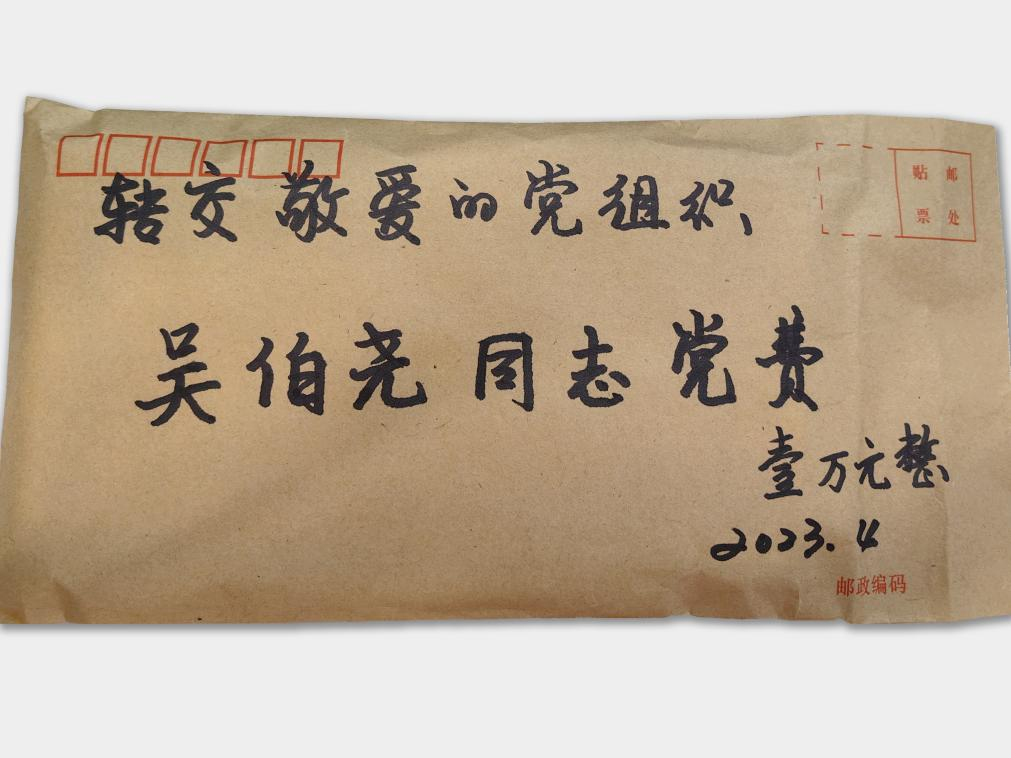 转交敬爱的党组织、
贴邮
票处
吴伯尧同志党费
壹万元整
2023.4
邮政编码